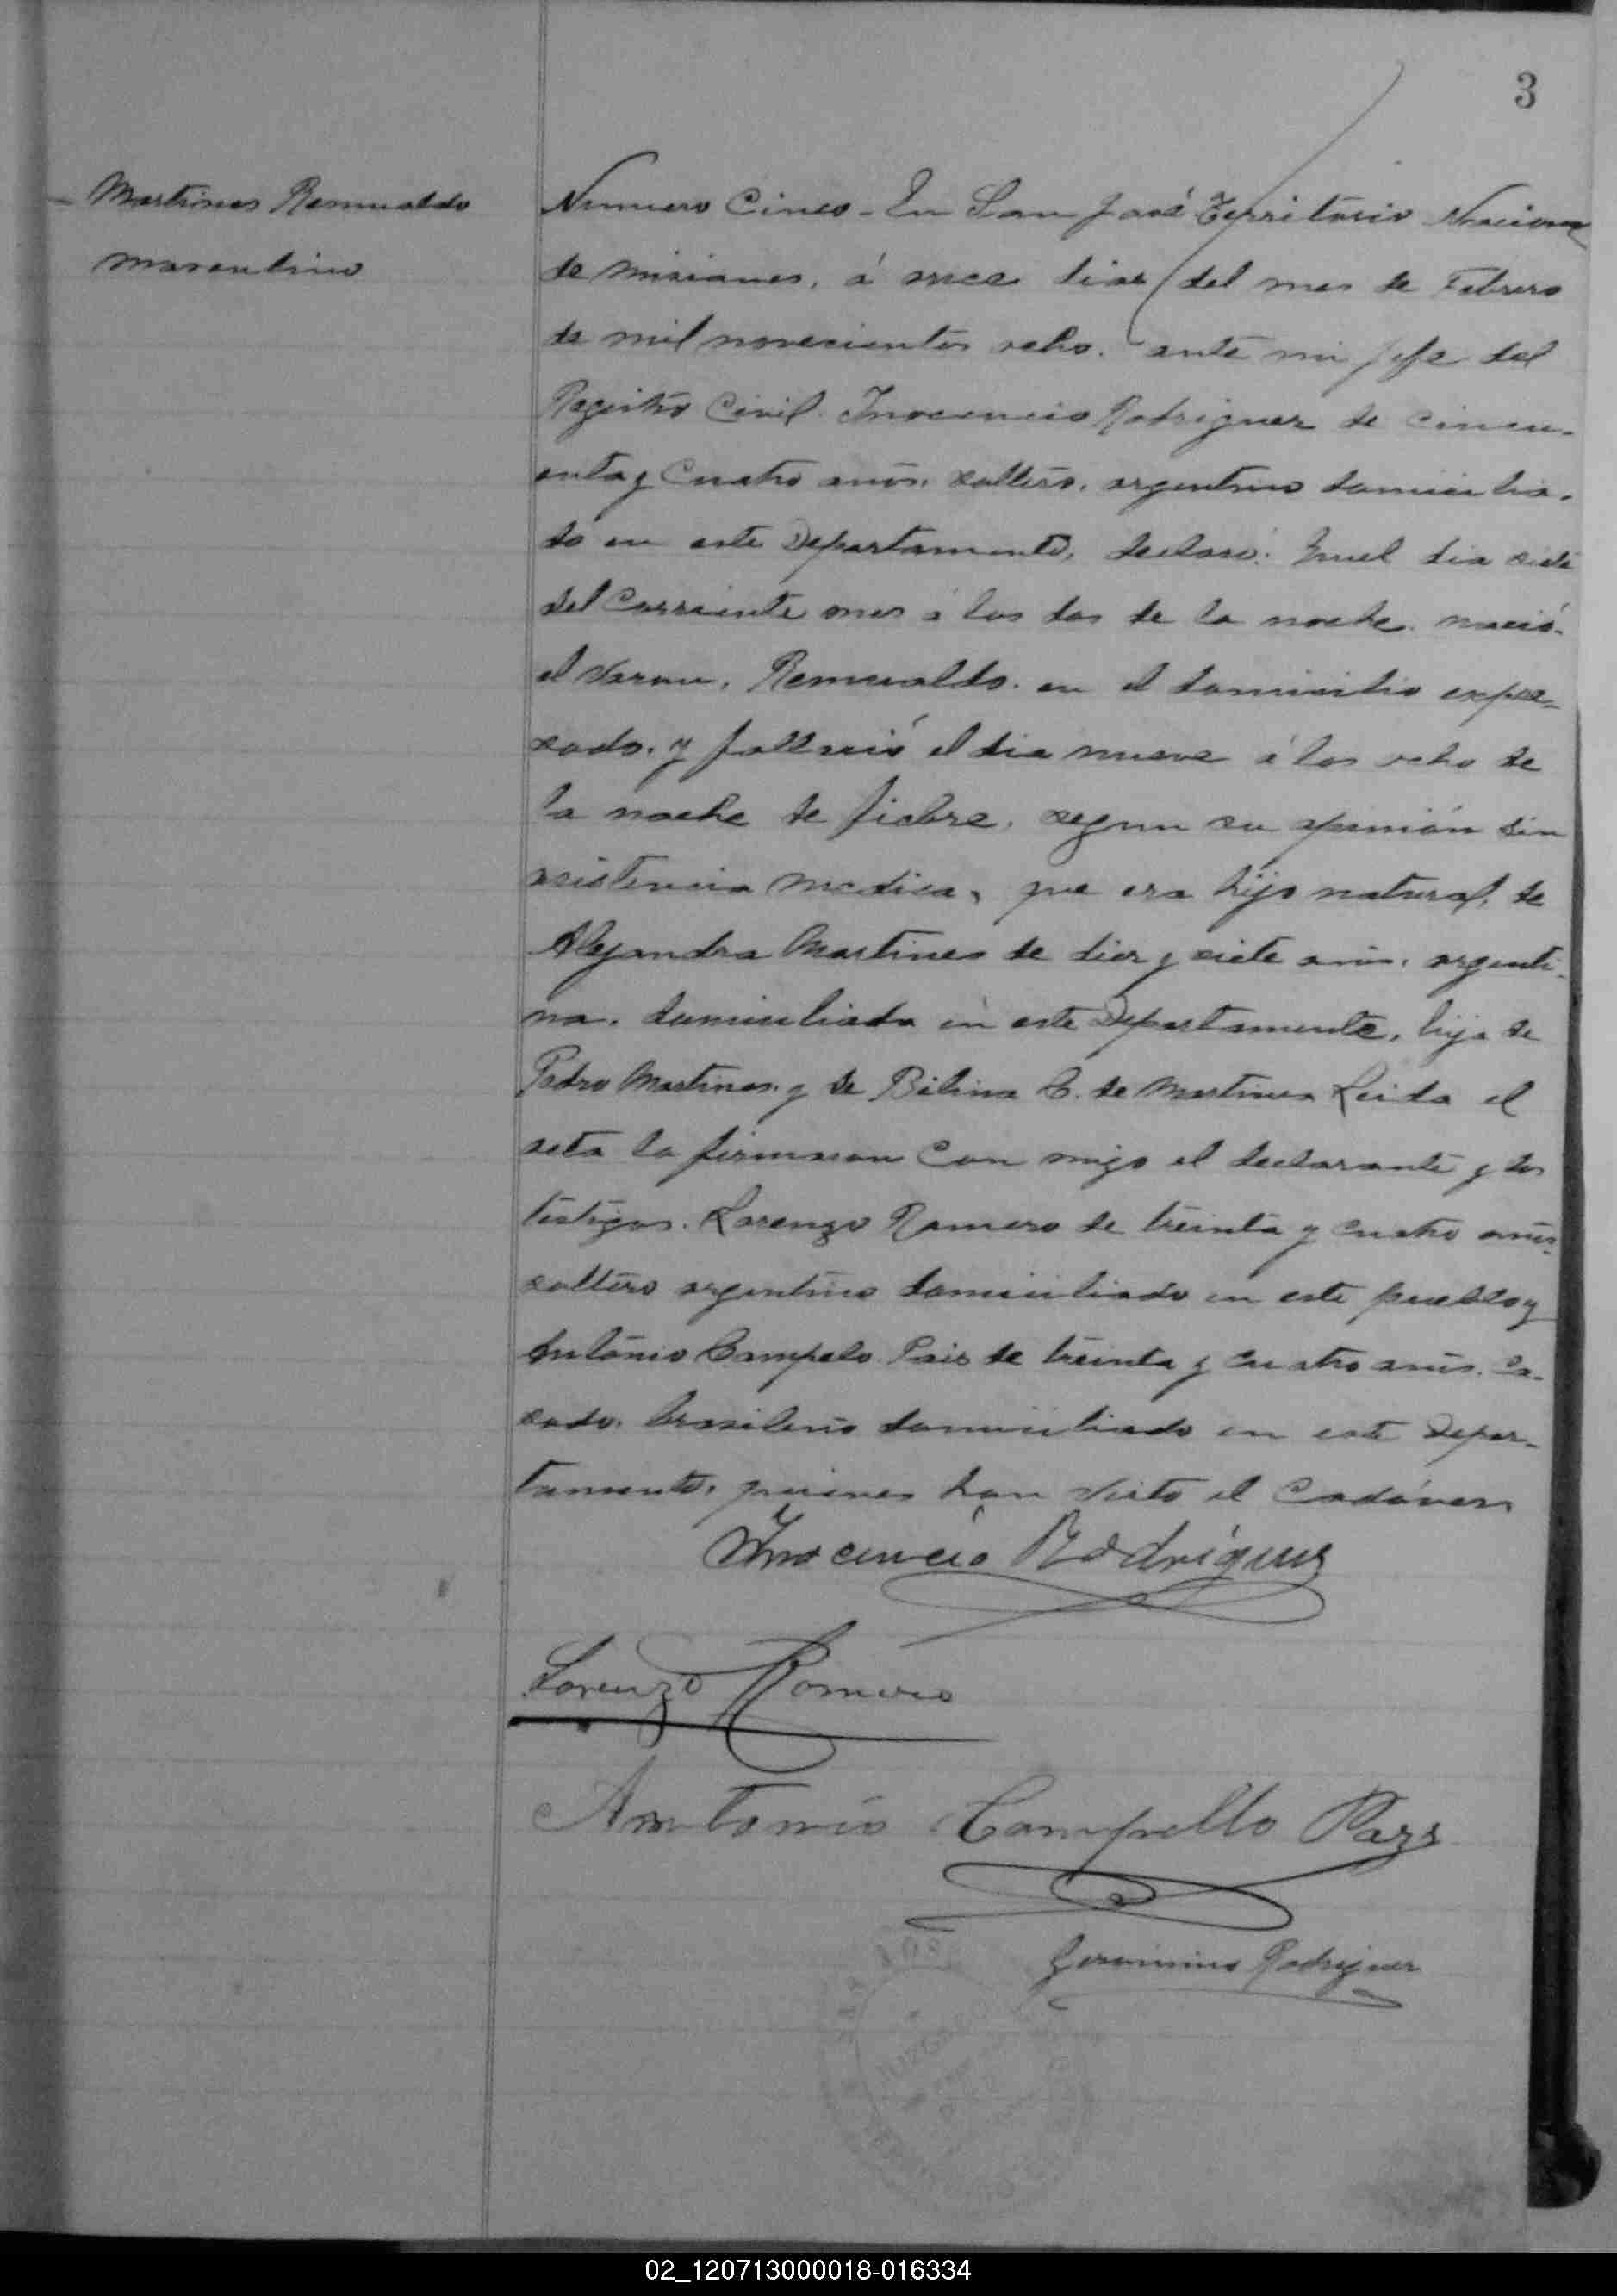 3
Martines Remualdo
masculino
Numero Cinco - En San José Territorio Nacional
de Misiones, á once dias del mes de Febrero
de mil novecientos ocho. ante mi jefe del
Registro Civil. Inocencio Rodriguez de cincu-
enta y Cuatro anos. soltero. argentino domicilia-
do en este Departamento, declaró: Quel dia siete
del Corriente mes á las dos de la noche. nació
el varon, Remualdo. en el domicilio expre-
sado. y falleció el dia nueve á las ocho de
la noche de fiebre, segun su opinión sin
asistencia medica, que era hijo natural, de
Alejandra Martines de diez y siete anos. argenti-
na. domiciliada en este Departamento, hija de
Pedro Martines y de Bibina C. de Martines Leida el
acta la firmaron Con migo el declarante y los
testigos. Lorenzo Romero de treinta y cuatro anos
soltero argentino domiciliado en este pueblo y
Antonio Campelo Pais de treinta y cuatro anos. Ca-
sado. brasilero domiciliado en este Depar-
tamento, quienes han visto el Cadáver
Inocencio Rodrigues
Lorenzo Romero
Antonio Campello Pazs
Geronimo Rodriguez
JUZGADO
PAZ
02_120713000018-016334